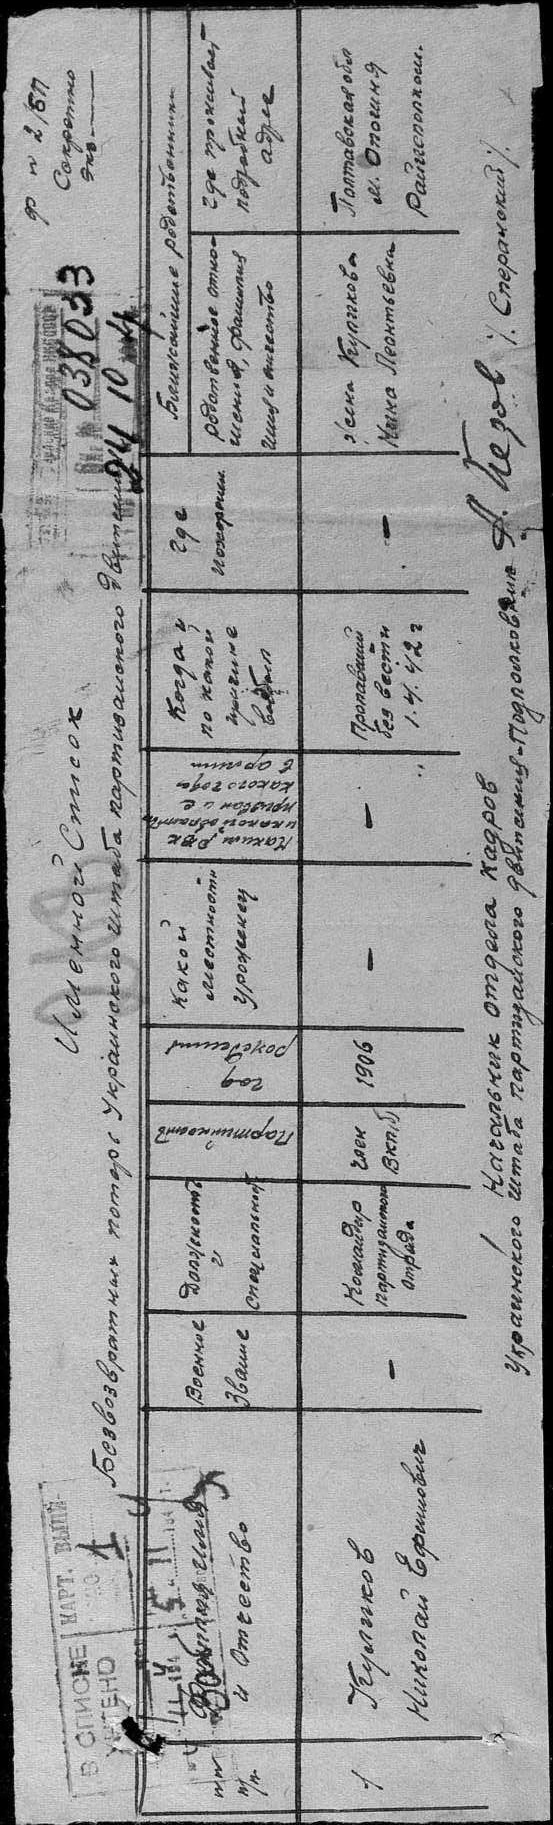 ф № 2/БП
Секретно
экз.
038033
24 10 4
В СПИСКЕ
УЧТЕНО
КАРТ. ВЫПИ
1
Именной Список
Безвозвратных потерь Украинского штаба партизанского движения
п/п
Фамилия Имя
и Отчество
Военное
Звание
Должность
и
специальность
Партийность
год
рождения
Какой
местности
уроженец
Каким РВК
и какой области
призван и с
какого года
в армии
Когда и
по какой
причине
выбыл
Где
похоронен
Ближайшие родственники
родственное отно-
шение, фамилия
имя и отчество
Где проживает
подробный
адрес
1
Куликов
Николай Ефимович
—
Командир
партизанского
отряда
член
ВКП/б
1906
—
—
Пропавший
без вести
1.4.42 г
—
Жена Куликова
Нина Леонтьевна
Полтавская обл
м. Опошня
Райисполком.
Начальник отдела Кадров
Украинского штаба партизанского движения - Подполковник
/Сперанский/.